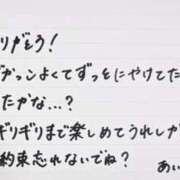 りがとう!
がっこよくてずっとにやけてた
たかな...?
ギリギリまで楽しめてうれしか
約束忘れないでね?
あい